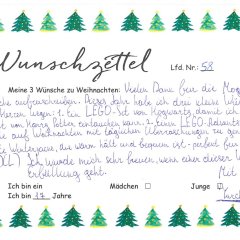 Wunschzettel
Lfd. Nr.: 58
Meine 3 Wünsche zu Weihnachten: Vielen Dank für die Mög
aufzuschreiben. Dieses Jahr habe ich drei kleine Wün
Herzen liegen: 1. Ein LEGO-Set von Hogwarts, damit ich
von Harry Potter eintauchen kann. 2. Einen LEGO-Advents
auf Weihnachten mit täglichen Überraschungen zu
Winterjacke, die warm hält und bequem ist - perfekt für
Ich würde mich sehr freuen, wenn einer dieser W
Erfüllung geht. Mit
Ich bin ein Mädchen Junge
Ich bin 17 Jahre